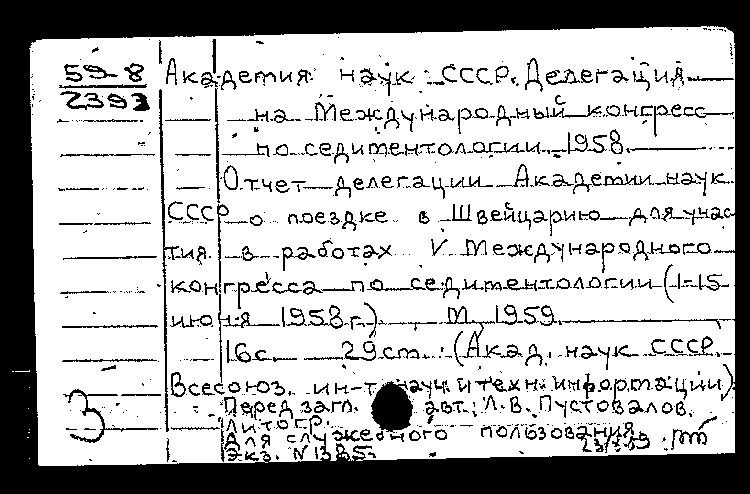 59-8 Академия наук СССР. Делегация
2393
на Международный конгресс
по седиментологии. 1958.
Отчет делегации Академии наук
СССР о поездке в Швейцарию для учас
тия в работах V Международного
конгресса по седиментологии (1-15
июня 1958г.) М, 1959.
16с. 29см. (Акад. наук СССР.
Всесоюз. ин-т науч. и техн. информации)
3 Перед загл. авт.: Л.В. Пустовалов.
Литогр.
Для служебного пользования
Экз. N 1385.